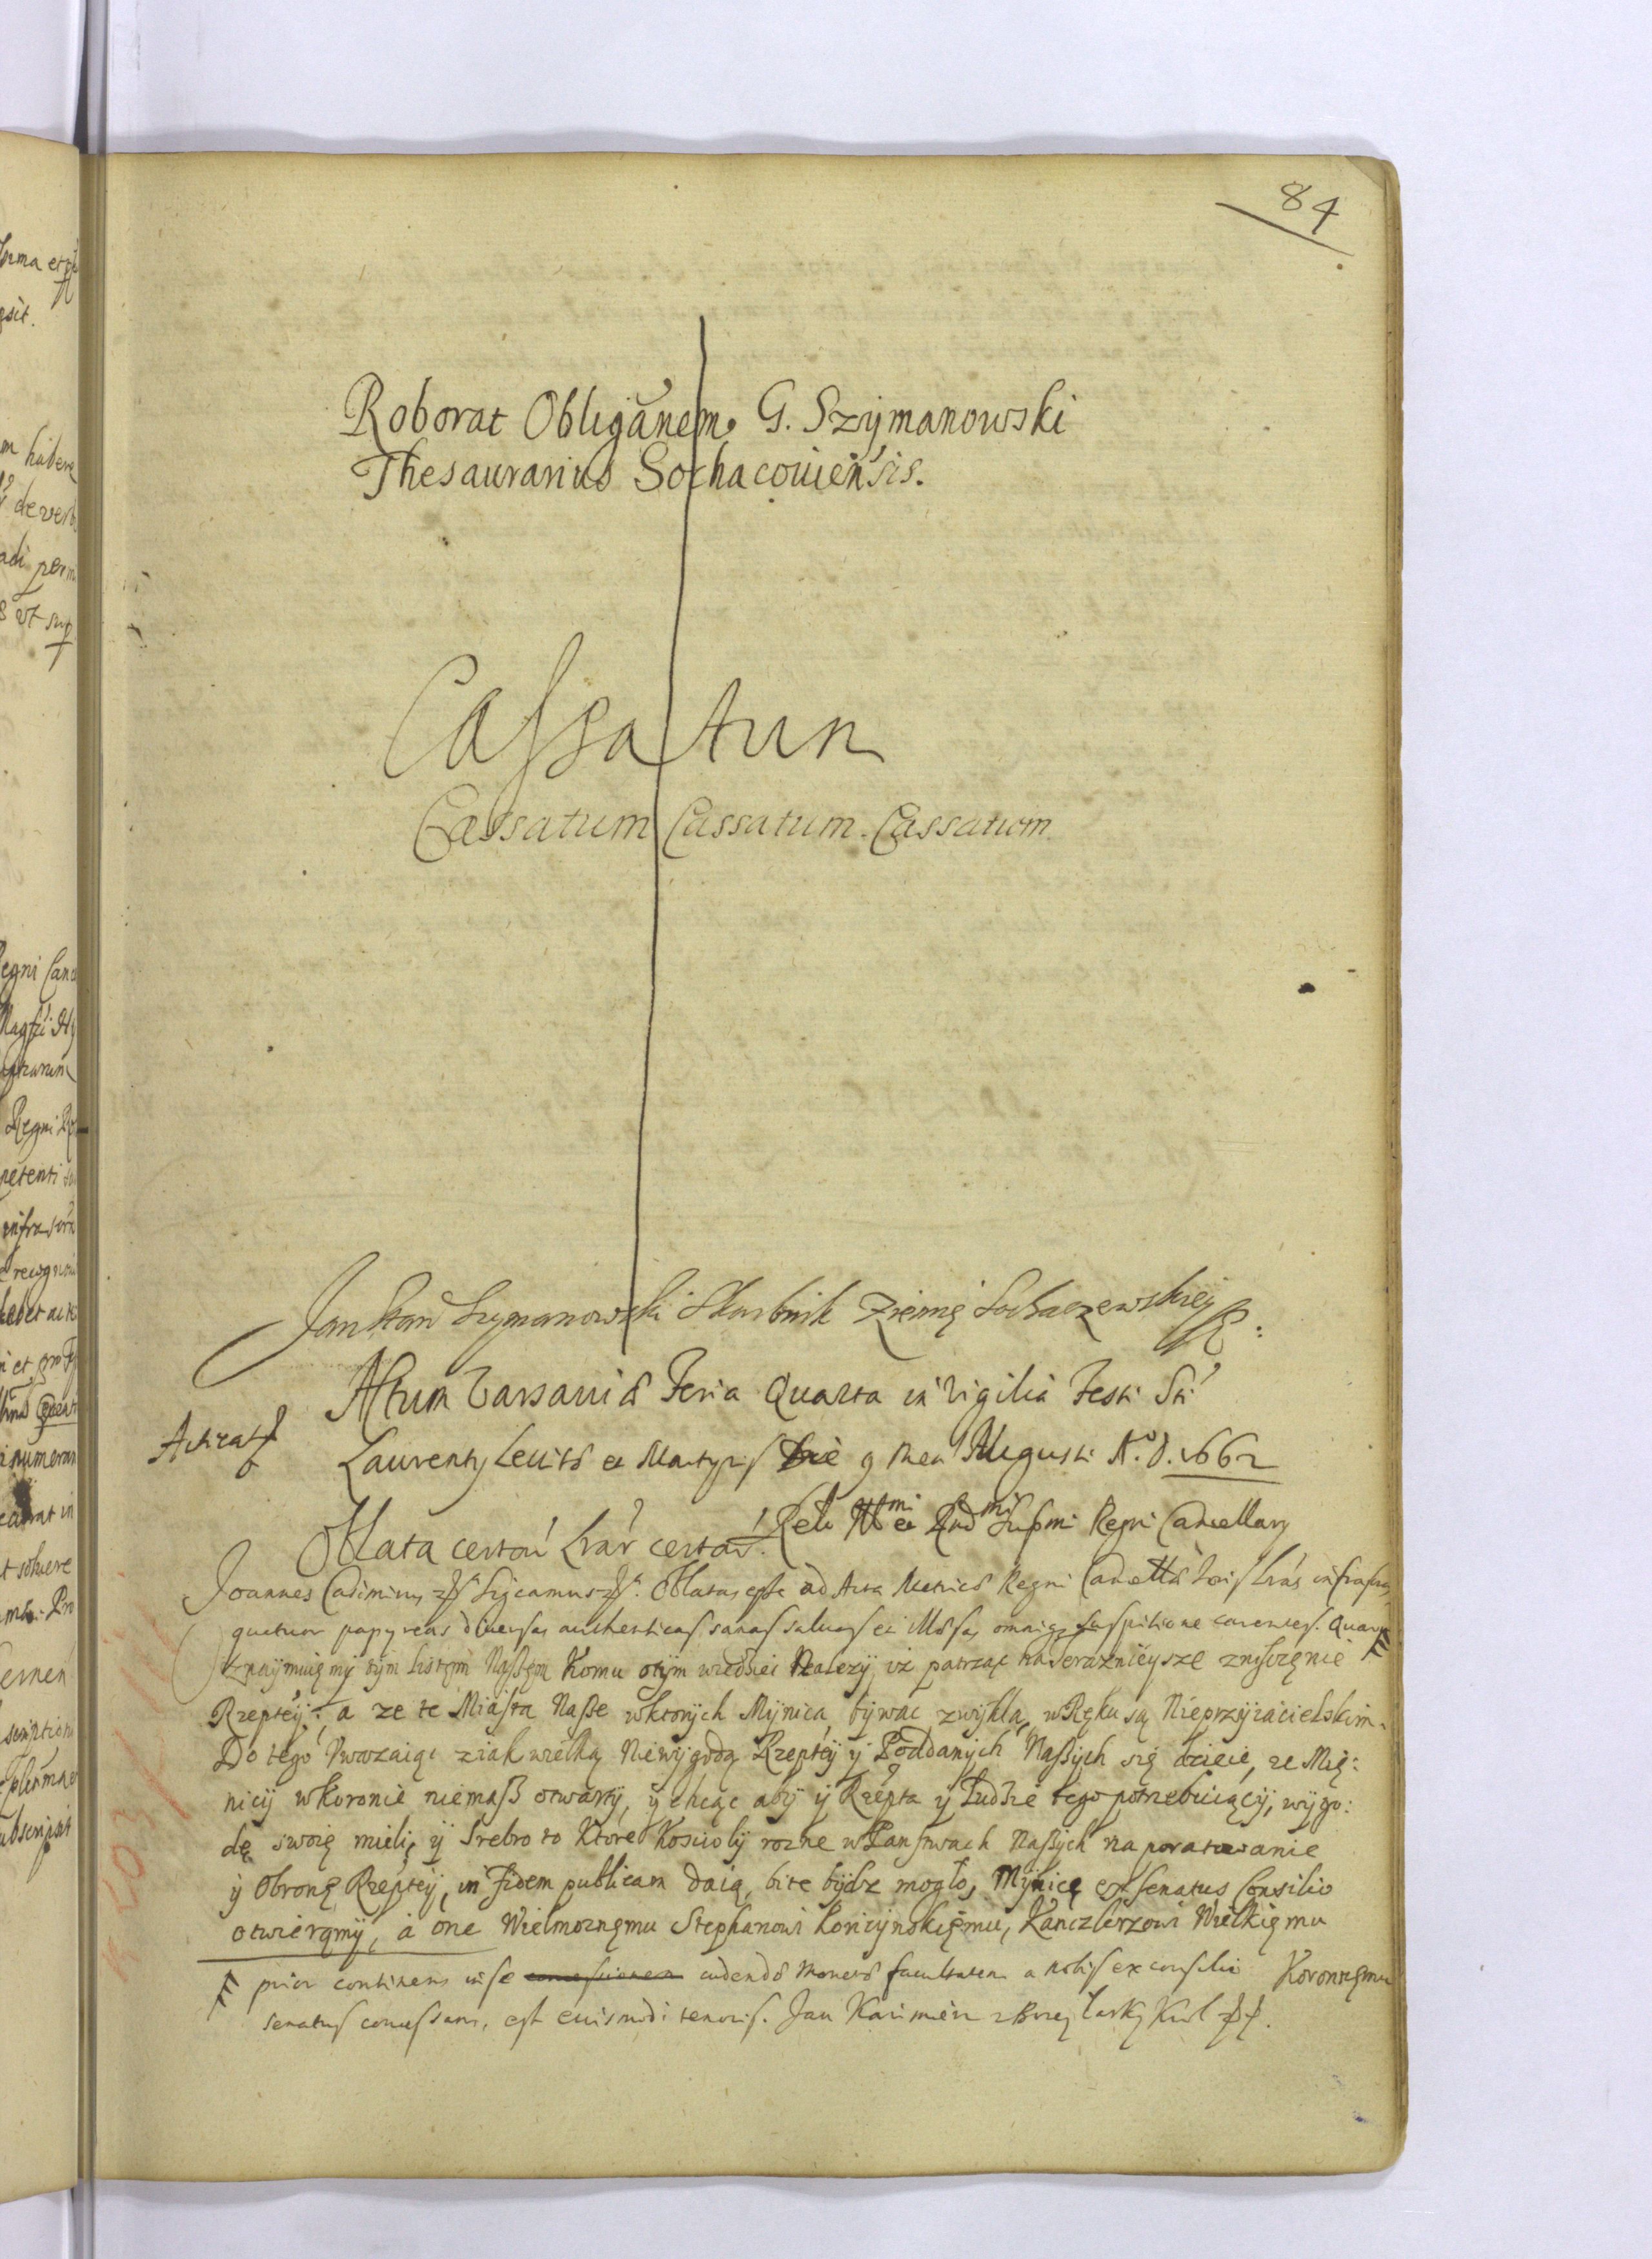 84
Roborat Obliganem G. Szÿmanowski
Thesaurarius Sochacouiensis.
Cassatun
Cassatum Cassatum. Cassatum.
Jan Stan Szymanowski Skarbnik Ziemię Sochaczewskiey
Actum Varsauiæ Feria Quarta in Vigilia Festi Sti
Laurentÿ Leuitæ et Martyris Die 9 Men Augusti A. D. 1662
Acticat
Oblata certar Lrar certar. Rela et Rnd Supmi Regni Cancellarÿ
Joannes Casimirus Significamus Oblatas esse ad Acta Metrices Regni Lras
quatuor papyreas diuersas authenticas sanas saluas et illæsas omniq suspitione carentes. Quarũ
Oznaÿmuięmÿ tÿm Listęm Naßęm Komu otÿm wiedziec Nalezÿ, iż patrząc na terazniejsze zniszczęnie
Rzeptėÿ: a ze te Miasta Naße wktorÿch Mÿnica bÿwac zwÿkla, wRęku są Nieprzÿiacielskim.
Do tego Vwazaiąc ziak wielką Niewÿgodą Rzeptėÿ ÿ Poddanÿch Naßÿch się dzieie, ze Mię:
nicÿ wkoronie niemaß otwartÿ, ÿ chcąc abÿ ÿ Rzepta ÿ Ludzie tego potrzebuiącÿ, wÿgo:
dę swoię mieli, ÿ Srebro to Ktore Koscíolÿ rozne wPanstwach Naßÿch na poratowanie
ÿ Obronę Rzeptėÿ, in Fidem publicam daią, bite bÿdz moglo, Mÿnicę ex Senatus Consilio
otwieramÿ, a one Wielmoznęmu Stephanowi Koricÿnskięmu, Kanczlerzowi Wielkięmu
Koronnęmu
prior continens in se cudendæ monetæ facultatem a nobis ex consilio
senatus concessam, est eiusmodi tenoris. Jan Kazimierz z Bozey Łasky Krol